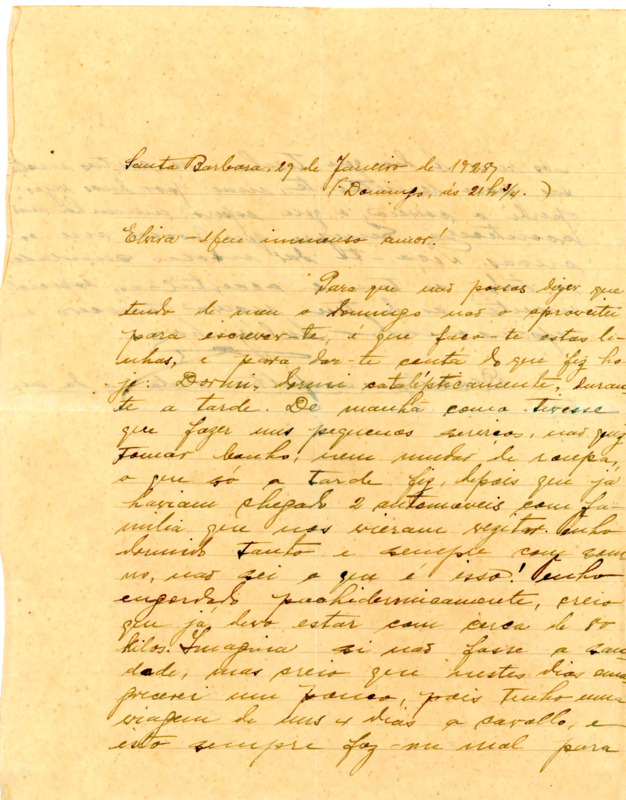 Santa Barbara, 29 de Janeiro de 1928,
(Domingo, ás 21h 3/4.)
Elvira - Meu immenso amor!
Para que não possas dizer que
tendo de meu o domingo não o aproveitei
para escrever-te, é que faço-te estas li-
nhas, e para dar-te conta do que fiz ho-
je. Dormi, dormi catalépticamente, duran-
te a tarde. De manhã como tivesse
que fazer uns pequenos serviços, não quiz
tomar banho, nem mudar de roupa,
o que só a tarde fiz, depois que já
haviam chegado 2 automoveis com fa-
milia que nos vieram vezitar. enho
dormido tanto e sempre com som-
no, não sei o que é isso! enho
engordado pachidermicamente, creio
que já devo estar com cerca de 80
kilos. Imagina si não fosse a sau-
dade, mas creio que nestes dias ema-
grecerei um pouco, pois tenho uma
viagem de uns 4 dias a cavallo, e
isto sempre faz-me mal para